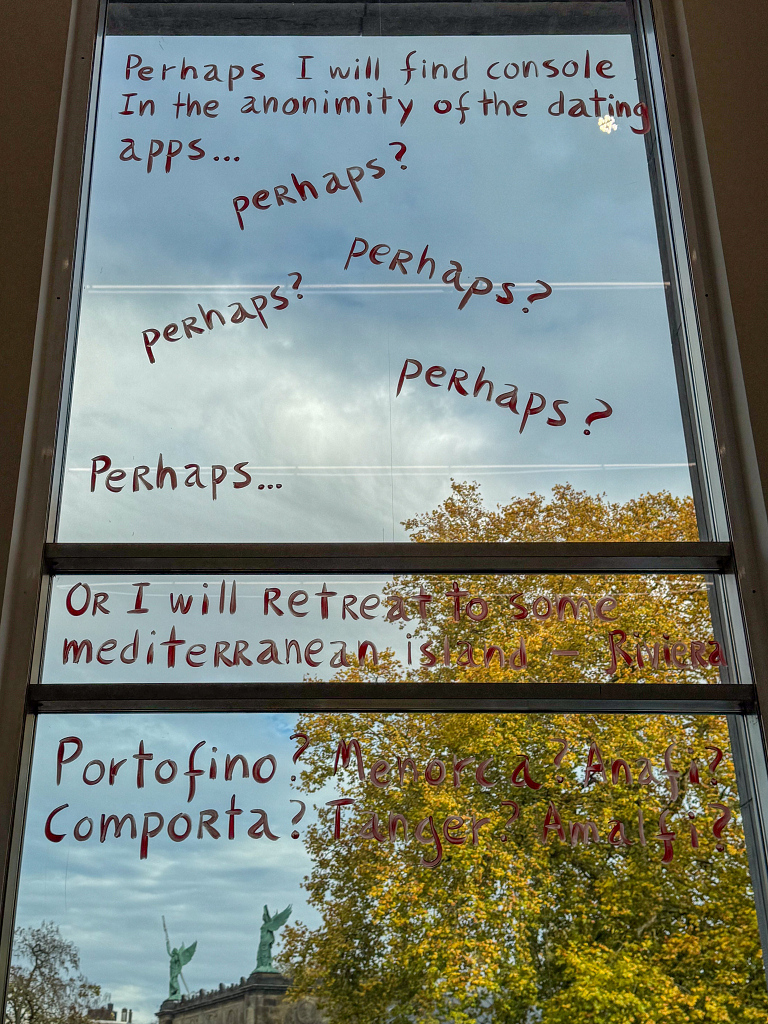 Perhaps I will find console
In the anonimity of the dating
apps...
perhaps?
perhaps?
perhaps?
perhaps?
Perhaps...
Or I will retreat to some
mediterranean island – Riviera
Portofino? Menorca? Anafi?
Comporta? Tanger? Amalfi?